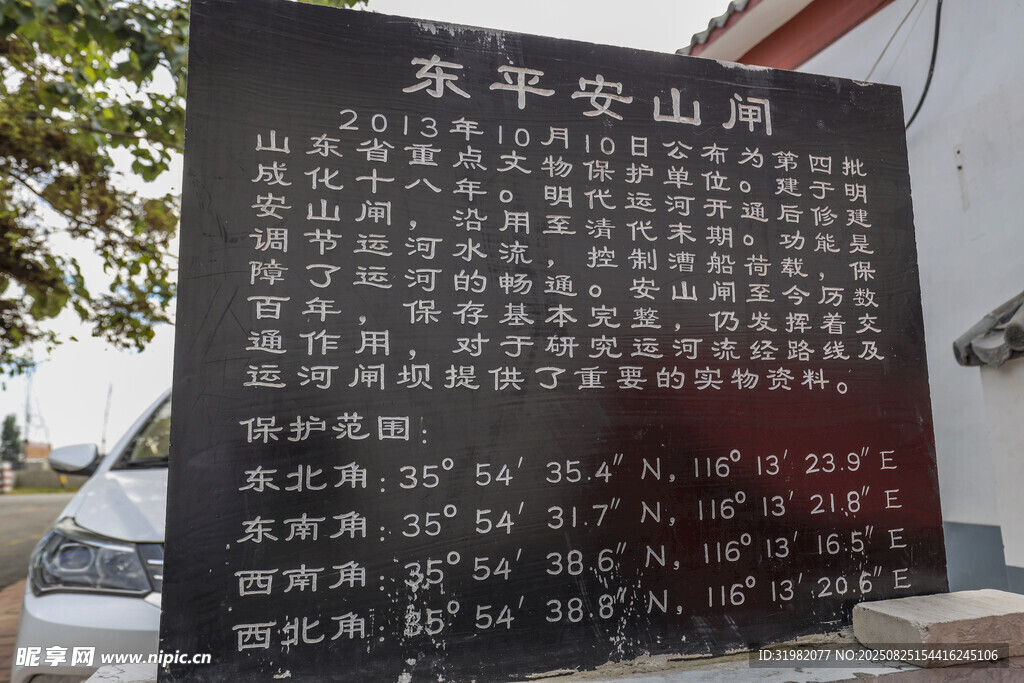 东平安山闸
2013年10月10日公布为第四批
山东省重点文物保护单位。建于明
成化十八年。明代运河开通后修建
安山闸,沿用至清代末期。功能是
调节运河水流,控制漕船荷载,保
障了运河的畅通。安山闸至今历数
百年,保存基本完整,仍发挥着交
通作用,对于研究运河流经路线及
运河闸坝提供了重要的实物资料。
保护范围:
东北角:35° 54′ 35.4″ N, 116° 13′ 23.9″ E
东南角:35° 54′ 31.7″ N, 116° 13′ 21.8″ E
西南角:35° 54′ 38.6″ N, 116° 13′ 16.5″ E
西北角:35° 54′ 38.8″ N, 116° 13′ 20.6″ E
昵享网 www.nipic.cn
ID:31982077 NO:20250825154416245106